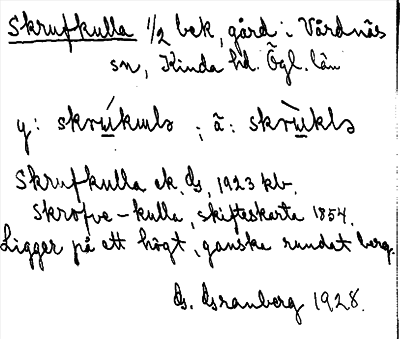 Skrufkulla 1/2 bek, gård i Vårdnäs
sn, Kinda hd. Ögl. län
y: skrúkuls ; ä: skrùkls
Skrufkulla ek. Ds, 1923 kb.
Skrofve-kulla, skifteskarta 1854.
Ligger på ett högt, ganska rundat berg.
Granberg 1928.